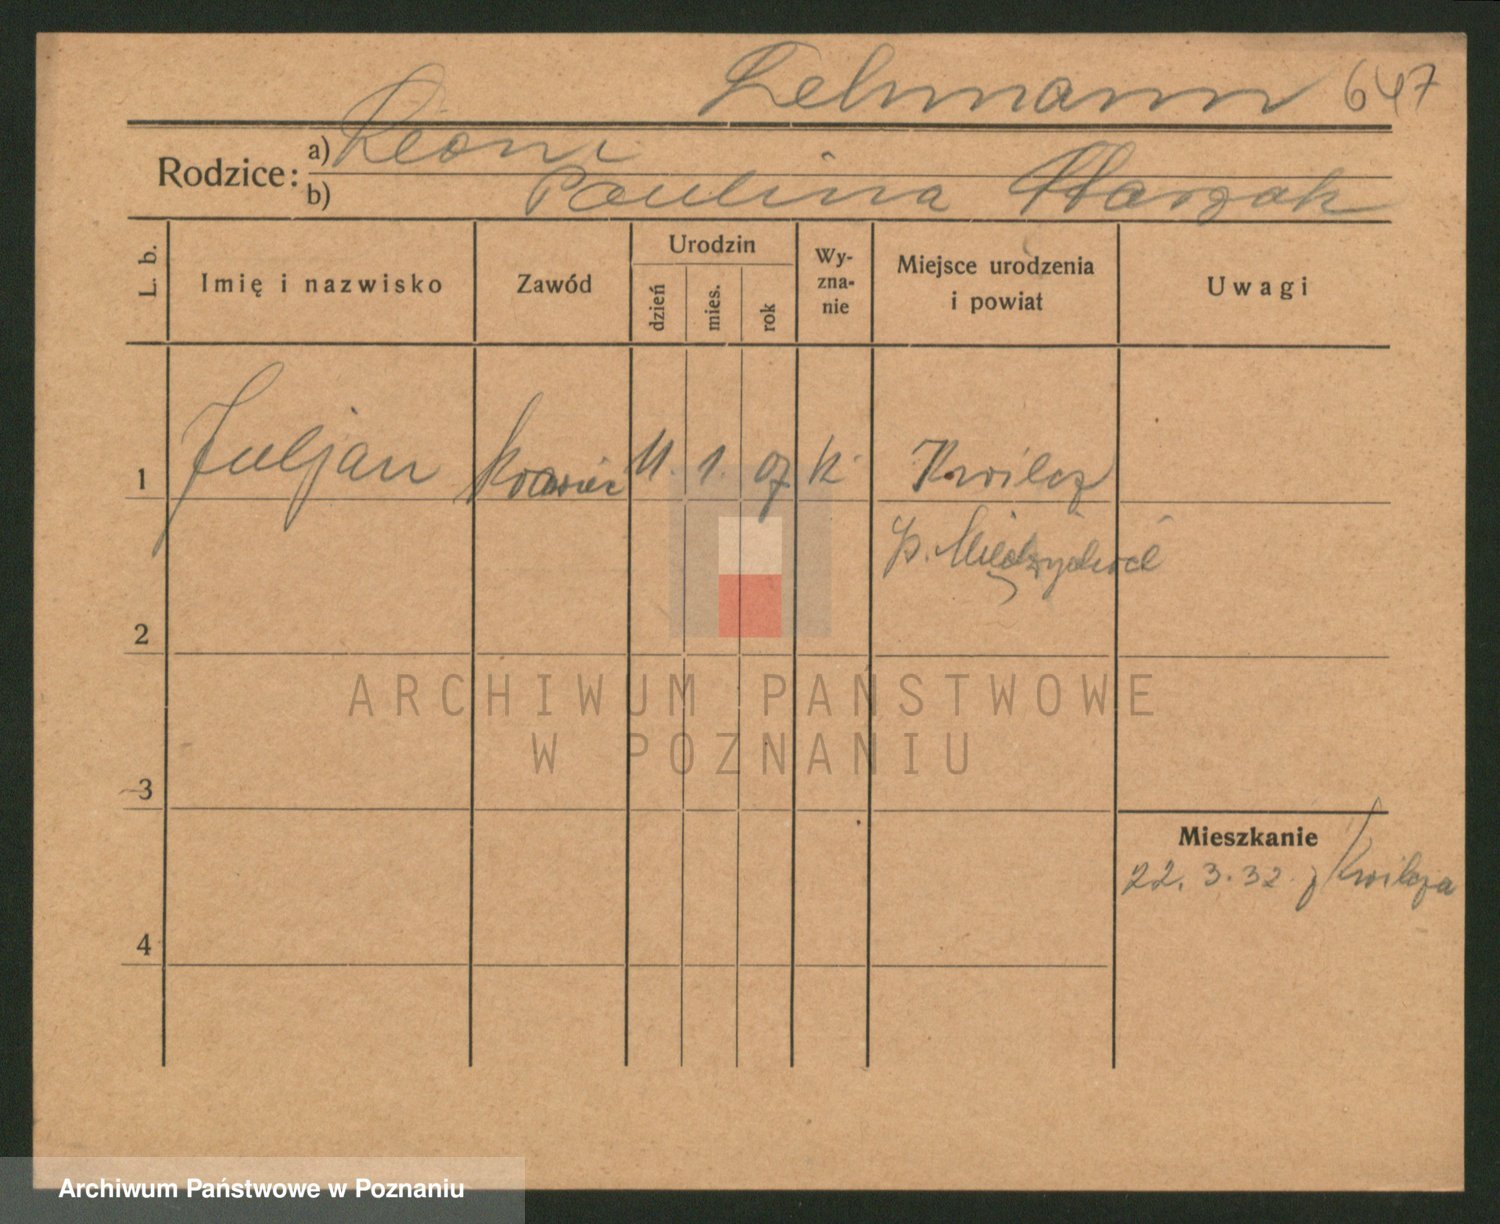 Lehmann 647
Rodzice: a) Leon i
b) Paulina
L. b. Imię i nazwisko Zawód Urodzin dzień mies. rok Wy-zna-nie Miejsce urodzenia i powiat Uwagi
1 Juljan krawiec 11. 1. 07 k. Kwilcz
p. Międzychód
2
ARCHIWUM PAŃSTWOWE
W POZNANIU
3
Mieszkanie
22. 3. 32 z Kwilcza
4
Archiwum Państwowe w Poznaniu